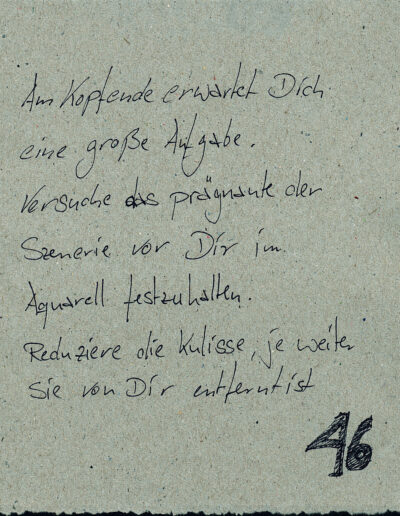 Am Kopfende erwartet Dich
eine große Aufgabe.
Versuche das prägnante der
Szenerie vor Dir im
Aquarell festzuhalten.
Reduziere die Kulisse, je weiter
sie von Dir entfernt ist
46